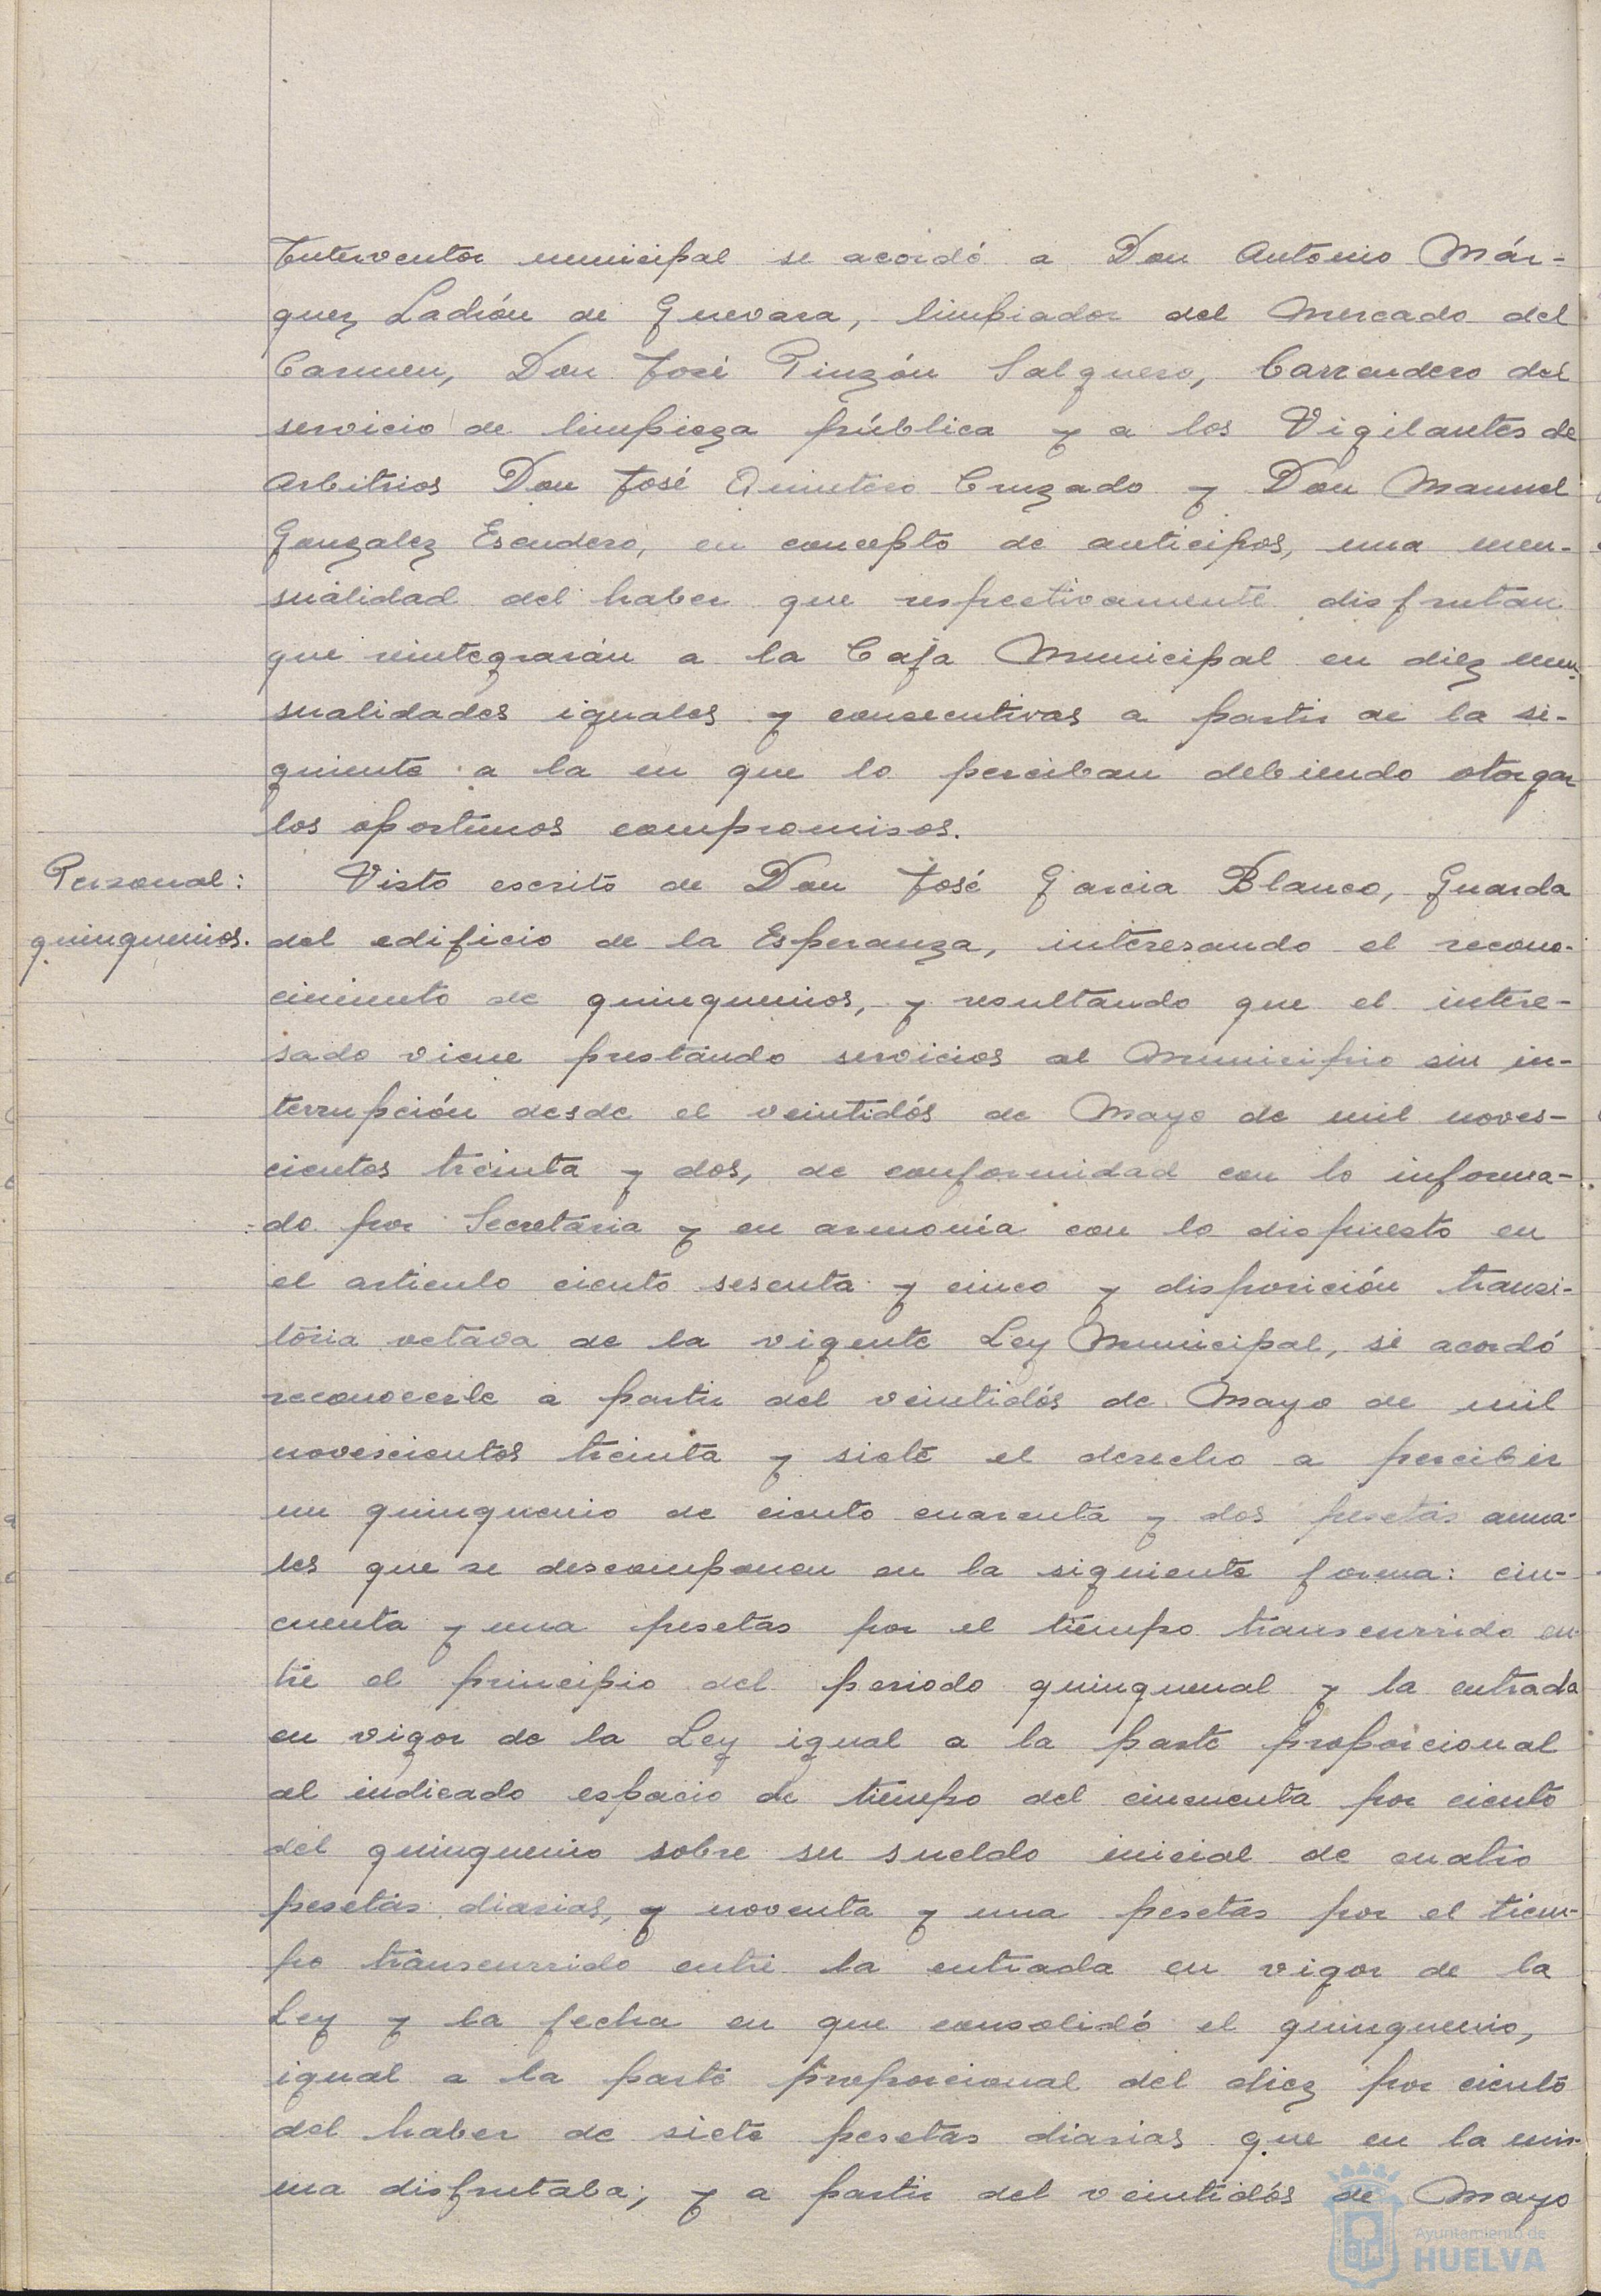 Interventor municipal se acordó a Don Antonio Már-
quez Ladrón de Guevara, limpiador del Mercado del
Carmen, Don José Pinzón Salguero, Barrendero del
servicio de limpieza pública y a los Vigilantes de
Arbitrios Don José Quintero Cruzado y Don Manuel
Gonzalez Escudero, en concepto de anticipos, una men-
sualidad del haber que respectivamente disfrutan
que reintegrarán a la Caja Municipal en diez men-
sualidades iguales y consecutivas a partir de la si-
guiente a la en que lo perciban debiendo otorgar
los oportunos compromisos.
Personal:
quinquenios.
Visto escrito de Don José Garcia Blanco, Guarda
del edificio de la Esperanza, interesando el recono-
cimiento de quinquenios, y resultando que el intere-
sado viene prestando servicios al Municipio sin in-
terrupción desde el veintidós de Mayo de mil noves-
cientos treinta y dos, de conformidad con lo informa-
do por Secretaria y en armonía con lo dispuesto en
el articulo ciento sesenta y cinco y disposición transi-
toria octava de la vigente Ley Municipal, se acordó
reconocerle a partir del veintidós de Mayo de mil
novescientos treinta y siete el derecho a percibir
un quinquenio de ciento cuarenta y dos pesetas anua-
les que se descomponen en la siguiente forma: cin-
cuenta y una pesetas por el tiempo transcurrido en-
tre el principio del periodo quinquenal y la entrada
en vigor de la Ley igual a la parte proporcional
al indicado espacio de tiempo del cincuenta por ciento
del quinquenio sobre su sueldo inicial de cuatro
pesetas diarias, y noventa y una pesetas por el tiem-
po transcurrido entre la entrada en vigor de la
Ley y la fecha en que consolidó el quinquenio,
igual a la parte proporcional del diez por ciento
del haber de siete pesetas diarias que en la mis-
ma disfrutaba; y a partir del veintidós de Mayo
Ayuntamiento de
HUELVA